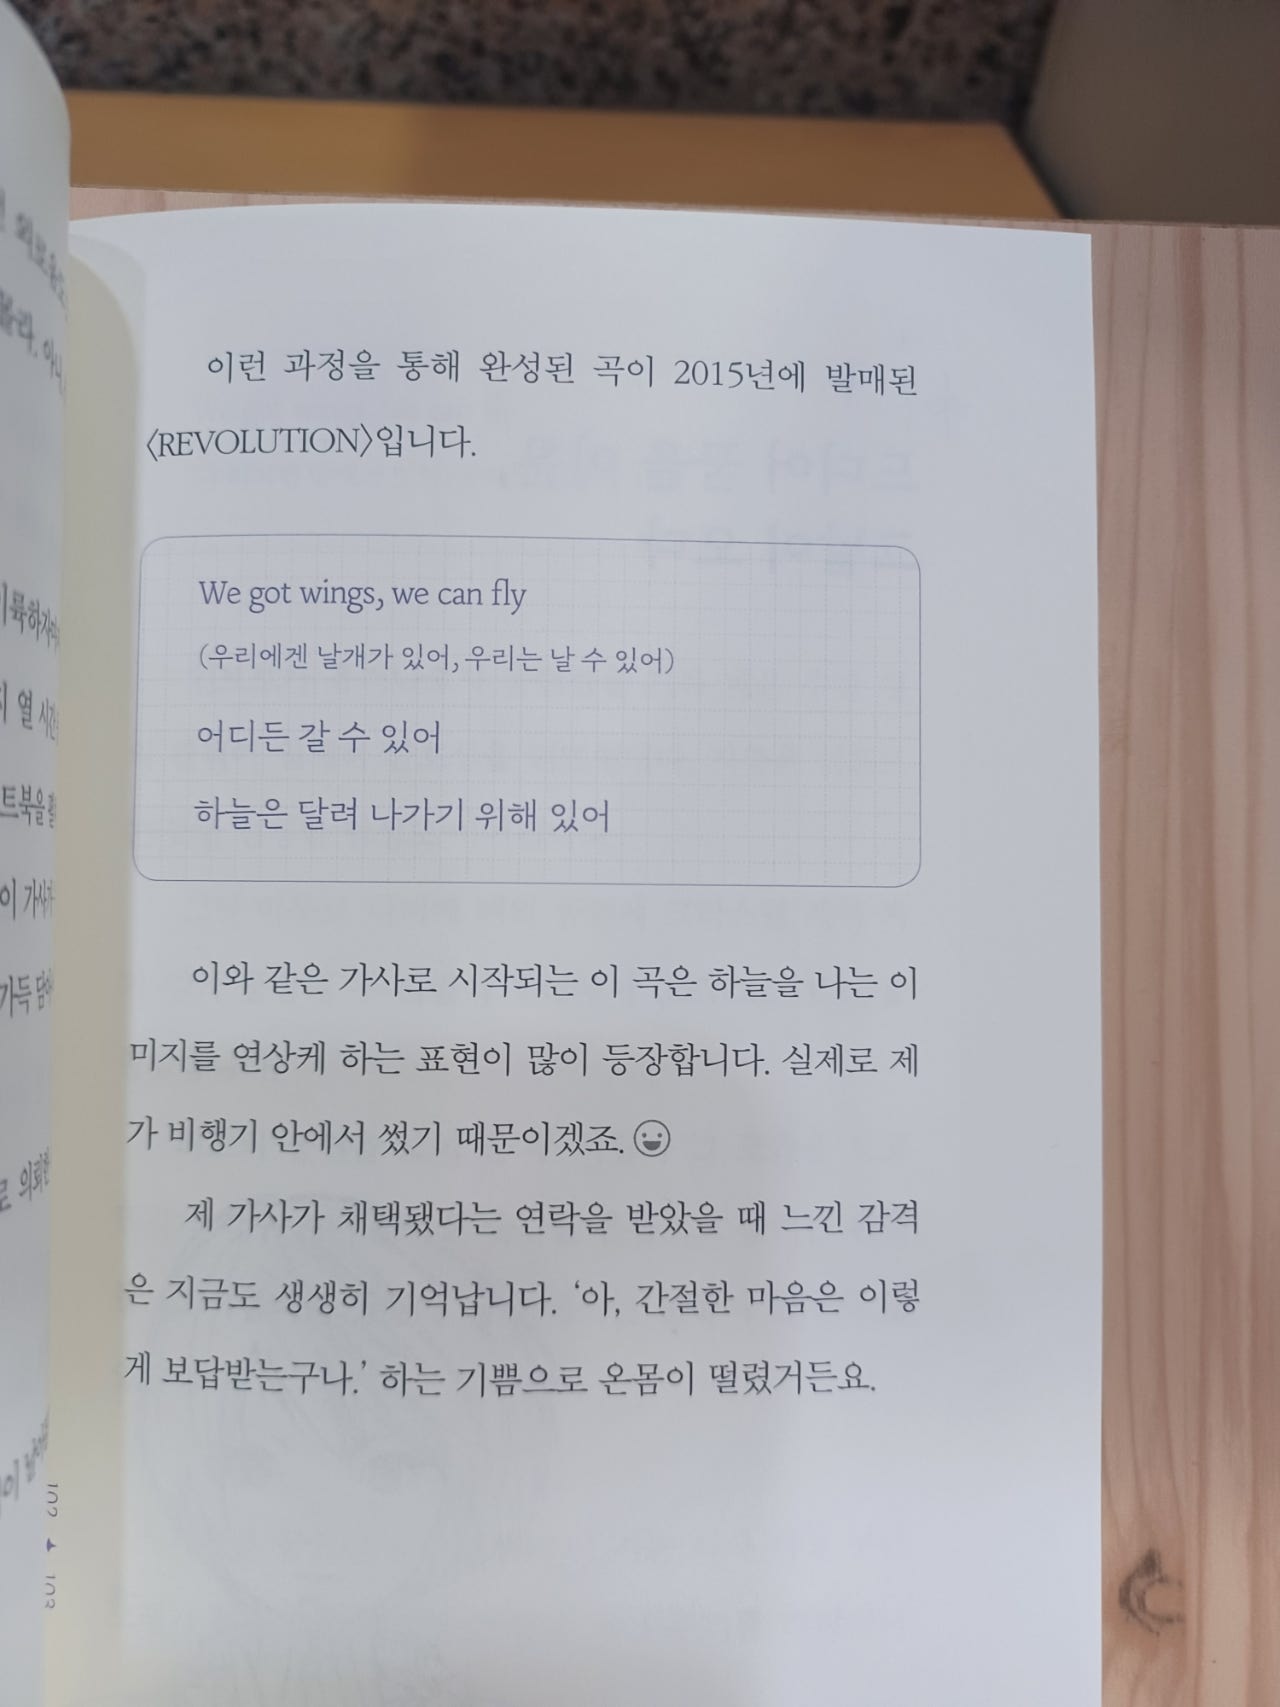 이런 과정을 통해 완성된 곡이 2015년에 발매된
〈REVOLUTION〉입니다.
We got wings, we can fly
(우리에겐 날개가 있어, 우리는 날 수 있어)
어디든 갈 수 있어
하늘은 달려 나가기 위해 있어
이와 같은 가사로 시작되는 이 곡은 하늘을 나는 이
미지를 연상케 하는 표현이 많이 등장합니다. 실제로 제
가 비행기 안에서 썼기 때문이겠죠.
제 가사가 채택됐다는 연락을 받았을 때 느낀 감격
은 지금도 생생히 기억납니다. ‘아, 간절한 마음은 이렇
게 보답받는구나.’ 하는 기쁨으로 온몸이 떨렸거든요.
102
103